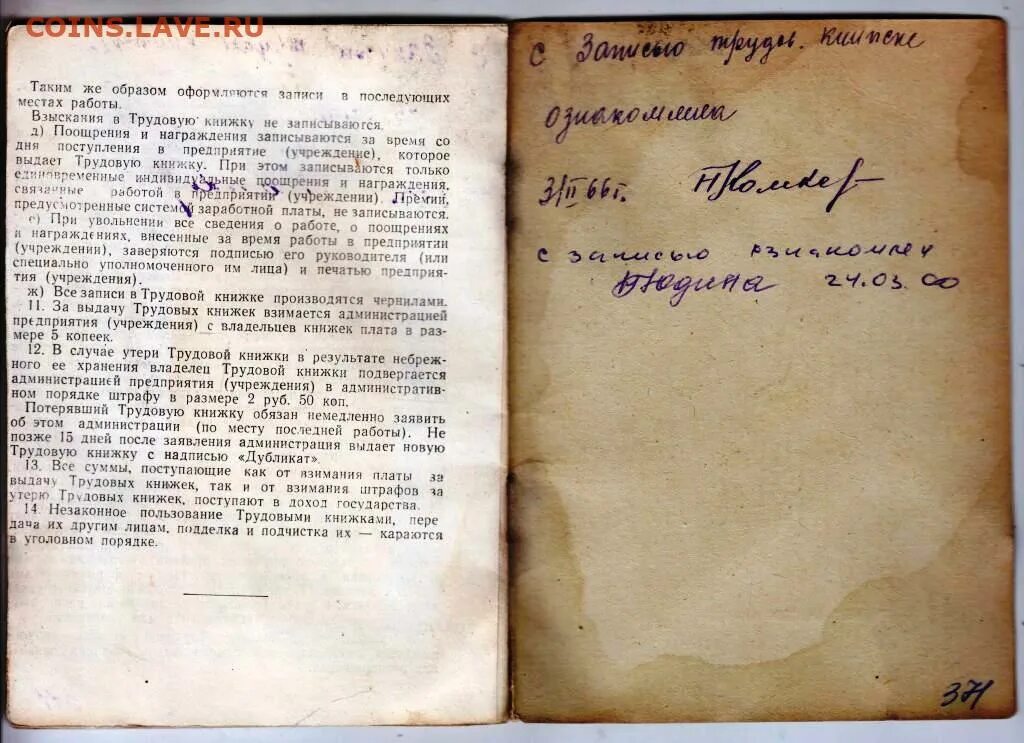 COINS.LAVE.RU
Таким же образом оформляются записи в последующих
местах работы.
Взыскания в Трудовую книжку не записываются.
д) Поощрения и награждения записываются за время со
дня поступления в предприятие (учреждение), которое
выдает Трудовую книжку. При этом записываются только
единовременные индивидуальные поощрения и награждения,
связанные работой в предприятии (учреждении). Премии,
предусмотренные системой заработной платы, не записываются.
е) При увольнении все сведения о работе, о поощрениях
и награждениях, внесенные за время работы в предприятии
(учреждении), заверяются подписью его руководителя (или
специально уполномоченного им лица) и печатью предприя-
тия (учреждения).
ж) Все записи в Трудовой книжке производятся чернилами.
11. За выдачу Трудовых книжек взимается администрацией
предприятия (учреждения) с владельцев книжек плата в раз-
мере 5 копеек.
12. В случае утери Трудовой книжки в результате небреж-
ного ее хранения владелец Трудовой книжки подвергается
администрацией предприятия (учреждения) в административ-
ном порядке штрафу в размере 2 руб. 50 коп.
Потерявший Трудовую книжку обязан немедленно заявить
об этом администрации (по месту последней работы). Не
позже 15 дней после заявления администрация выдает новую
Трудовую книжку с надписью «Дубликат».
13. Все суммы, поступающие как от взимания платы за
выдачу Трудовых книжек, так и от взимания штрафов за
утерю Трудовых книжек, поступают в доход государства.
14. Незаконное пользование Трудовыми книжками, пере
дача их другим лицам, подделка и подчистка их — караются
в уголовном порядке.
с Записью трудов.
ознакомлена
3/II 66 г.
с записью
24.03.00
371